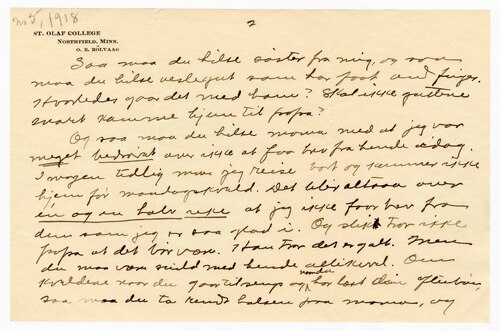 5, 1918
2
ST. OLAF COLLEGE
NORTHFIELD, MINN.
O. E. RÖLVAAG
Saa maa du hilse söster fra mig, og saa
maa du hilse veslegut som har faat ond finger.
Hvorledes gaar det med ham? Skal ikke gutten
svart komme hjem til papa?
Og saa maa du hilse mama med at jeg var
meget bedrövet over ikke at faa brev fra hende idag.
I morgen tidlig maa jeg reise bort og kommer ikke
hjem för mandagskveld. Det blir altsaa over
en og en halv uke at jeg ikke faar brev fra
dem som jeg er saa glad i. Og slikt tror ikke
papa at det bör være. Han tror det er galt. Men
du maa være snild med hende allikevel. Om
kveldene naar du gaar til sengs og har læst din aftenbön
saa maa du ta rundt halsen paa mama, og